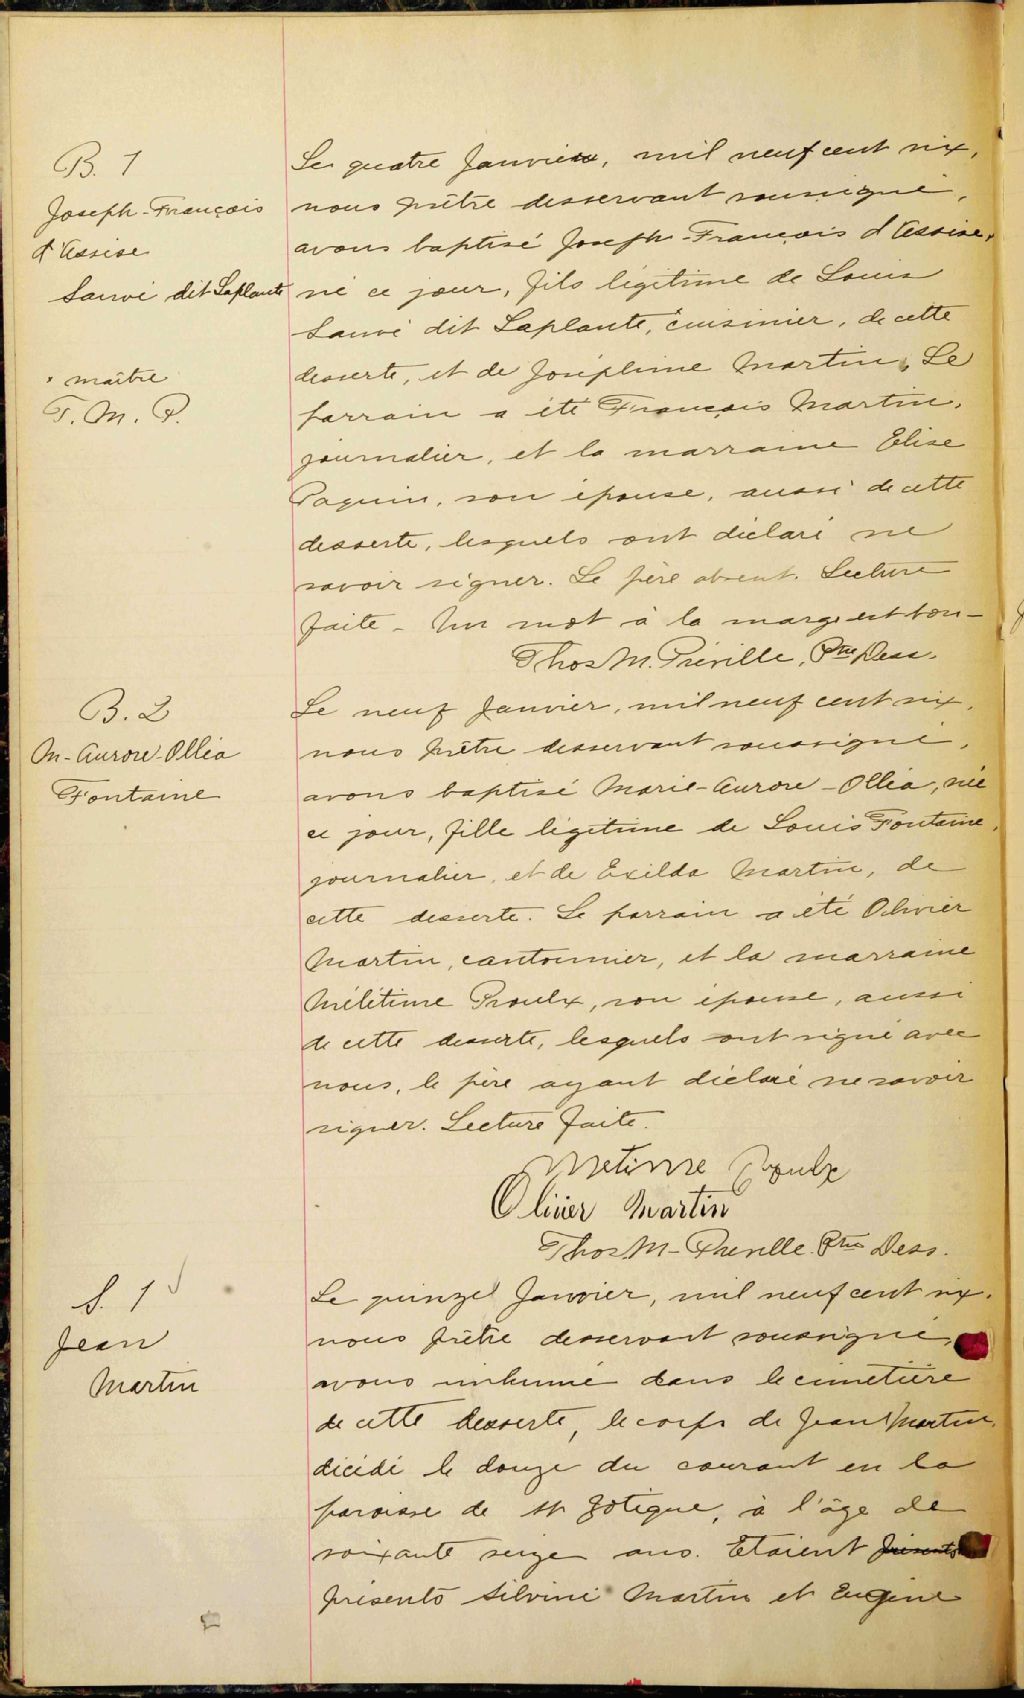 B. 1
Joseph-François
d'Assise
Sauvé dit Laplante
× maître
T. M. P.
Le quatre Janvier, mil neuf cent six,
nous prêtre desservant soussigné,
avons baptisé Joseph-François d'Assise,
né ce jour, fils légitime de Louis
Sauvé dit Laplante, × cuisinier, de cette
desserte, et de Joséphine Martin. Le
parrain a été François Martin,
journalier, et la marraine Elise
Paquin, son épouse, aussi de cette
desserte, lesquels ont déclaré ne
savoir signer. Le père absent. Lecture
faite - Un mot à la marge est bon -
Thos M. Préville, Ptre Dess.
B. 2
M-Aurore-Olléa
Fontaine
Le neuf Janvier, mil neuf cent six,
nous prêtre desservant soussigné,
avons baptisé Marie-Aurore-Olléa, née
ce jour, fille légitime de Louis Fontaine,
journalier, et de Exilda Martin, de
cette desserte. Le parrain a été Olivier
Martin, cantonnier, et la marraine
Mélétime Proulx, son épouse, aussi
de cette desserte, lesquels ont signé avec
nous, le père ayant déclaré ne savoir
signer. Lecture faite.
Metinne Proulx
Olivier Martin
Thos M- Préville. Ptre Dess.
S. 1
Jean
Martin
Le quinze Janvier, mil neuf cent six,
nous prêtre desservant soussigné,
avons inhumé dans le cimetière
de cette desserte, le corps de Jean Martin,
décédé le douze du courant en la
paroisse de St Zotique, à l'âge de
soixante seize ans. Etaient présents
présents Silvini Martin et Eugène